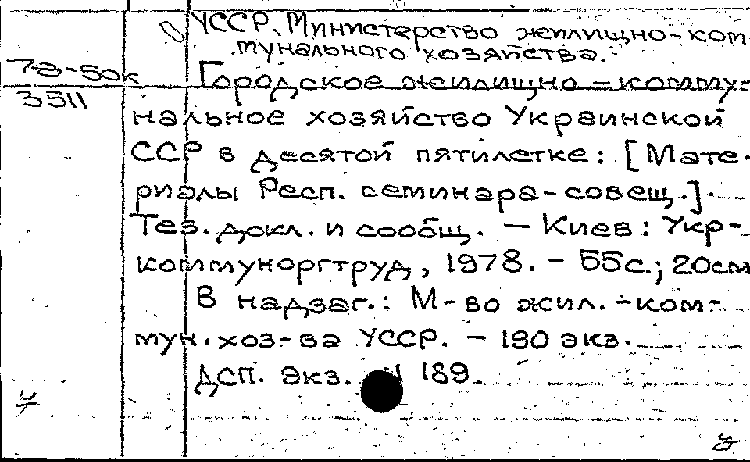 УССР. Министерство жилищно-ком
мунального хозяйства.
7-8-50к
3511
Городское жилищно-комму-
нальное хозяйство Украинской
ССР в десятой пятилетке: [Мате-
риалы Респ. семинара-совещ.].
Тез. докл. и сообщ. — Киев: Укр-
коммуноргтруд, 1978. - 55с.; 20см
В надзаг.: М-во жил.-ком-
мун. хоз-ва УССР. - 190 экз.
ДСП. Экз. 189.